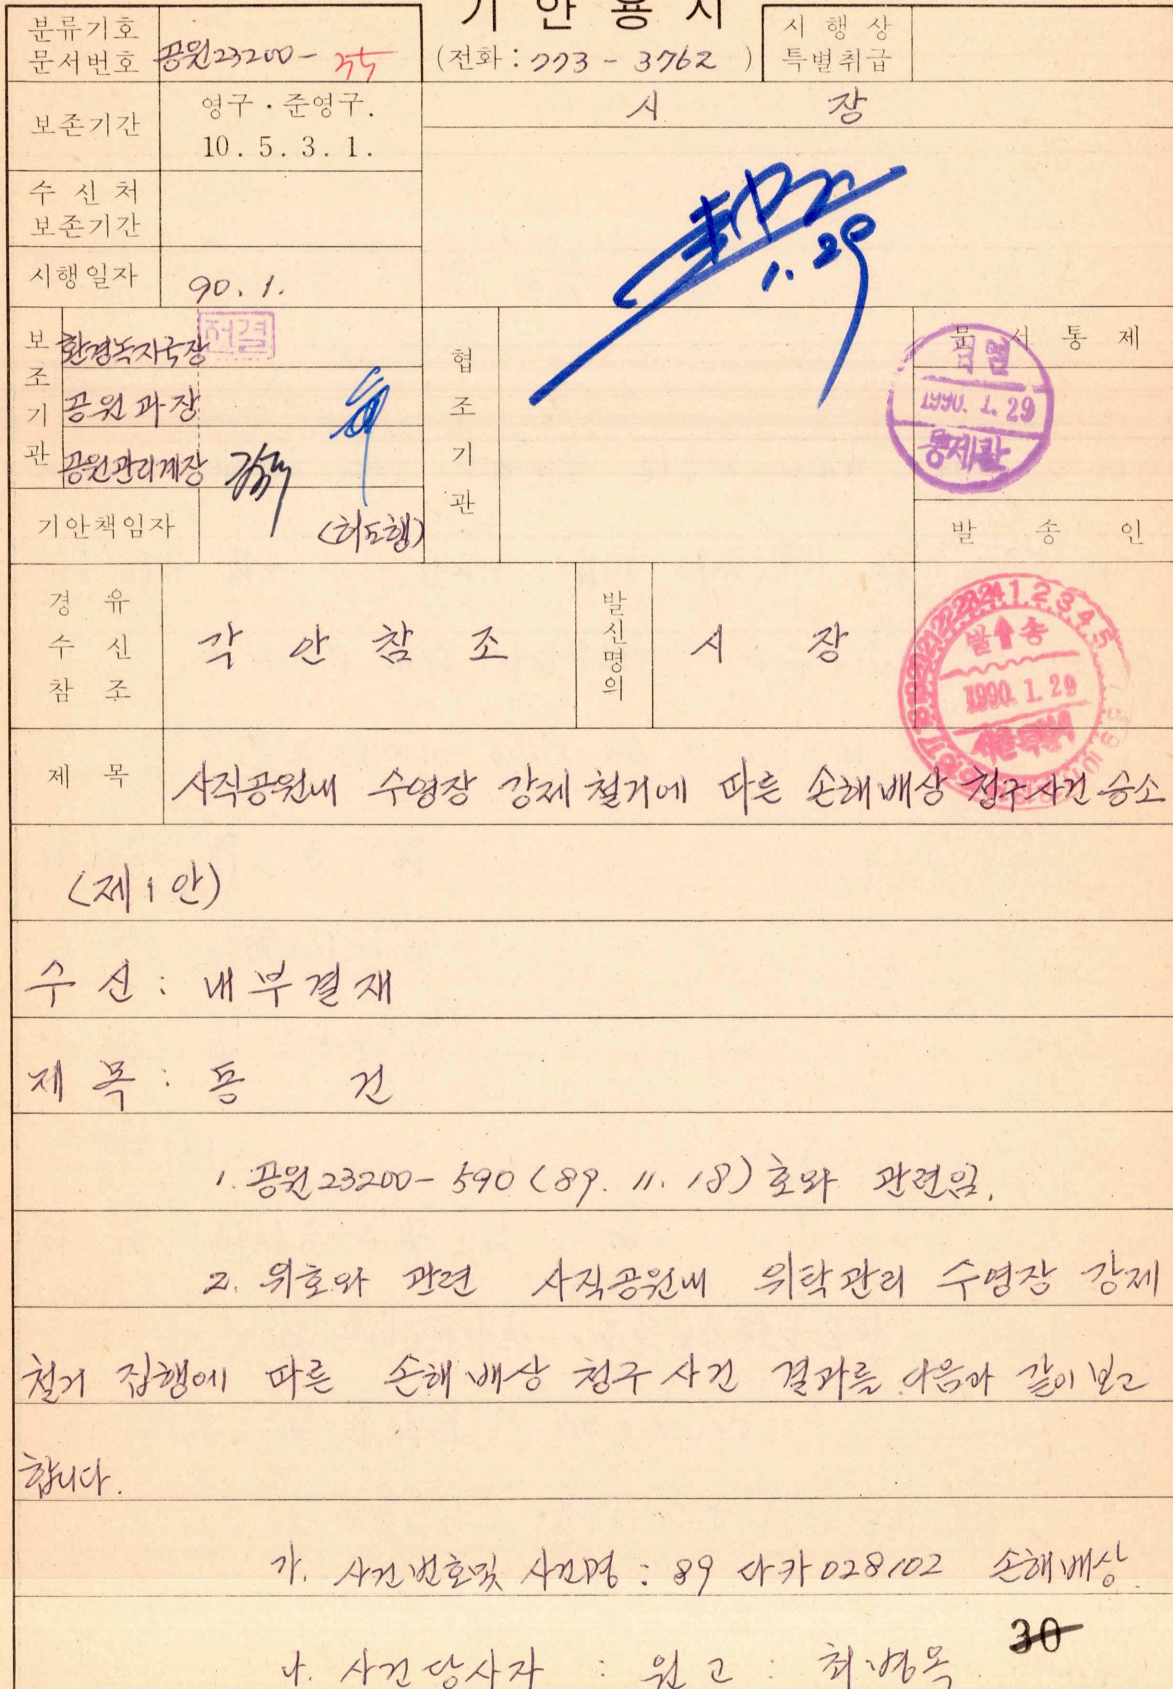 기 안 용 지
분류기호
문서번호 공원23200- 55
(전화 : 773 - 3762 )
시 행 상
특별취급
보존기간
영구 · 준영구.
10 . 5 . 3 . 1 .
시 장
수 신 처
보존기간
시행일자 90. 1.
1. 29
보조기관
환경녹지국장 전결
공원과장
공원관리계장
협조기관
문 서 통 제
검열
1990. 1. 29
통제관
기안책임자 (허도행)
발 송 인
경 유
수 신
참 조
각 안 참 조
발신명의
시 장
발송
1990. 1. 29
서울특별시
제 목 사직공원내 수영장 강제철거에 따른 손해배상 청구사건 승소
(제1안)
수 신 : 내부결재
제 목 : 동 건
1. 공원23200-590 (89. 11. 18) 호와 관련임.
2. 위호와 관련 사직공원내 위탁관리 수영장 강제
철거 집행에 따른 손해배상 청구사건 결과를 다음과 같이 보고
합니다.
가. 사건번호및 사건명 : 89 다카 028102 손해배상.
나. 사건당사자 : 원고 : 최병목
30